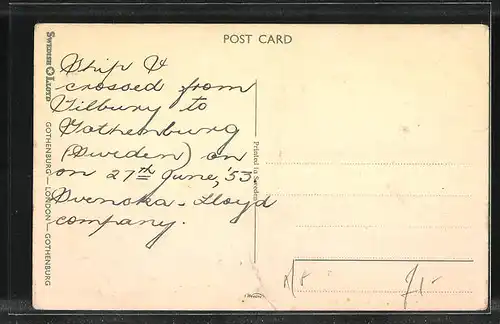 POST CARD
SWEDISH LLOYD
GOTHENBURG — LONDON — GOTHENBURG
Ship I
crossed from
Tilbury to
Gothenburg
(Sweden) on
on 27th June, '53
Svenska-Lloyd
company.
Printed in Sweden